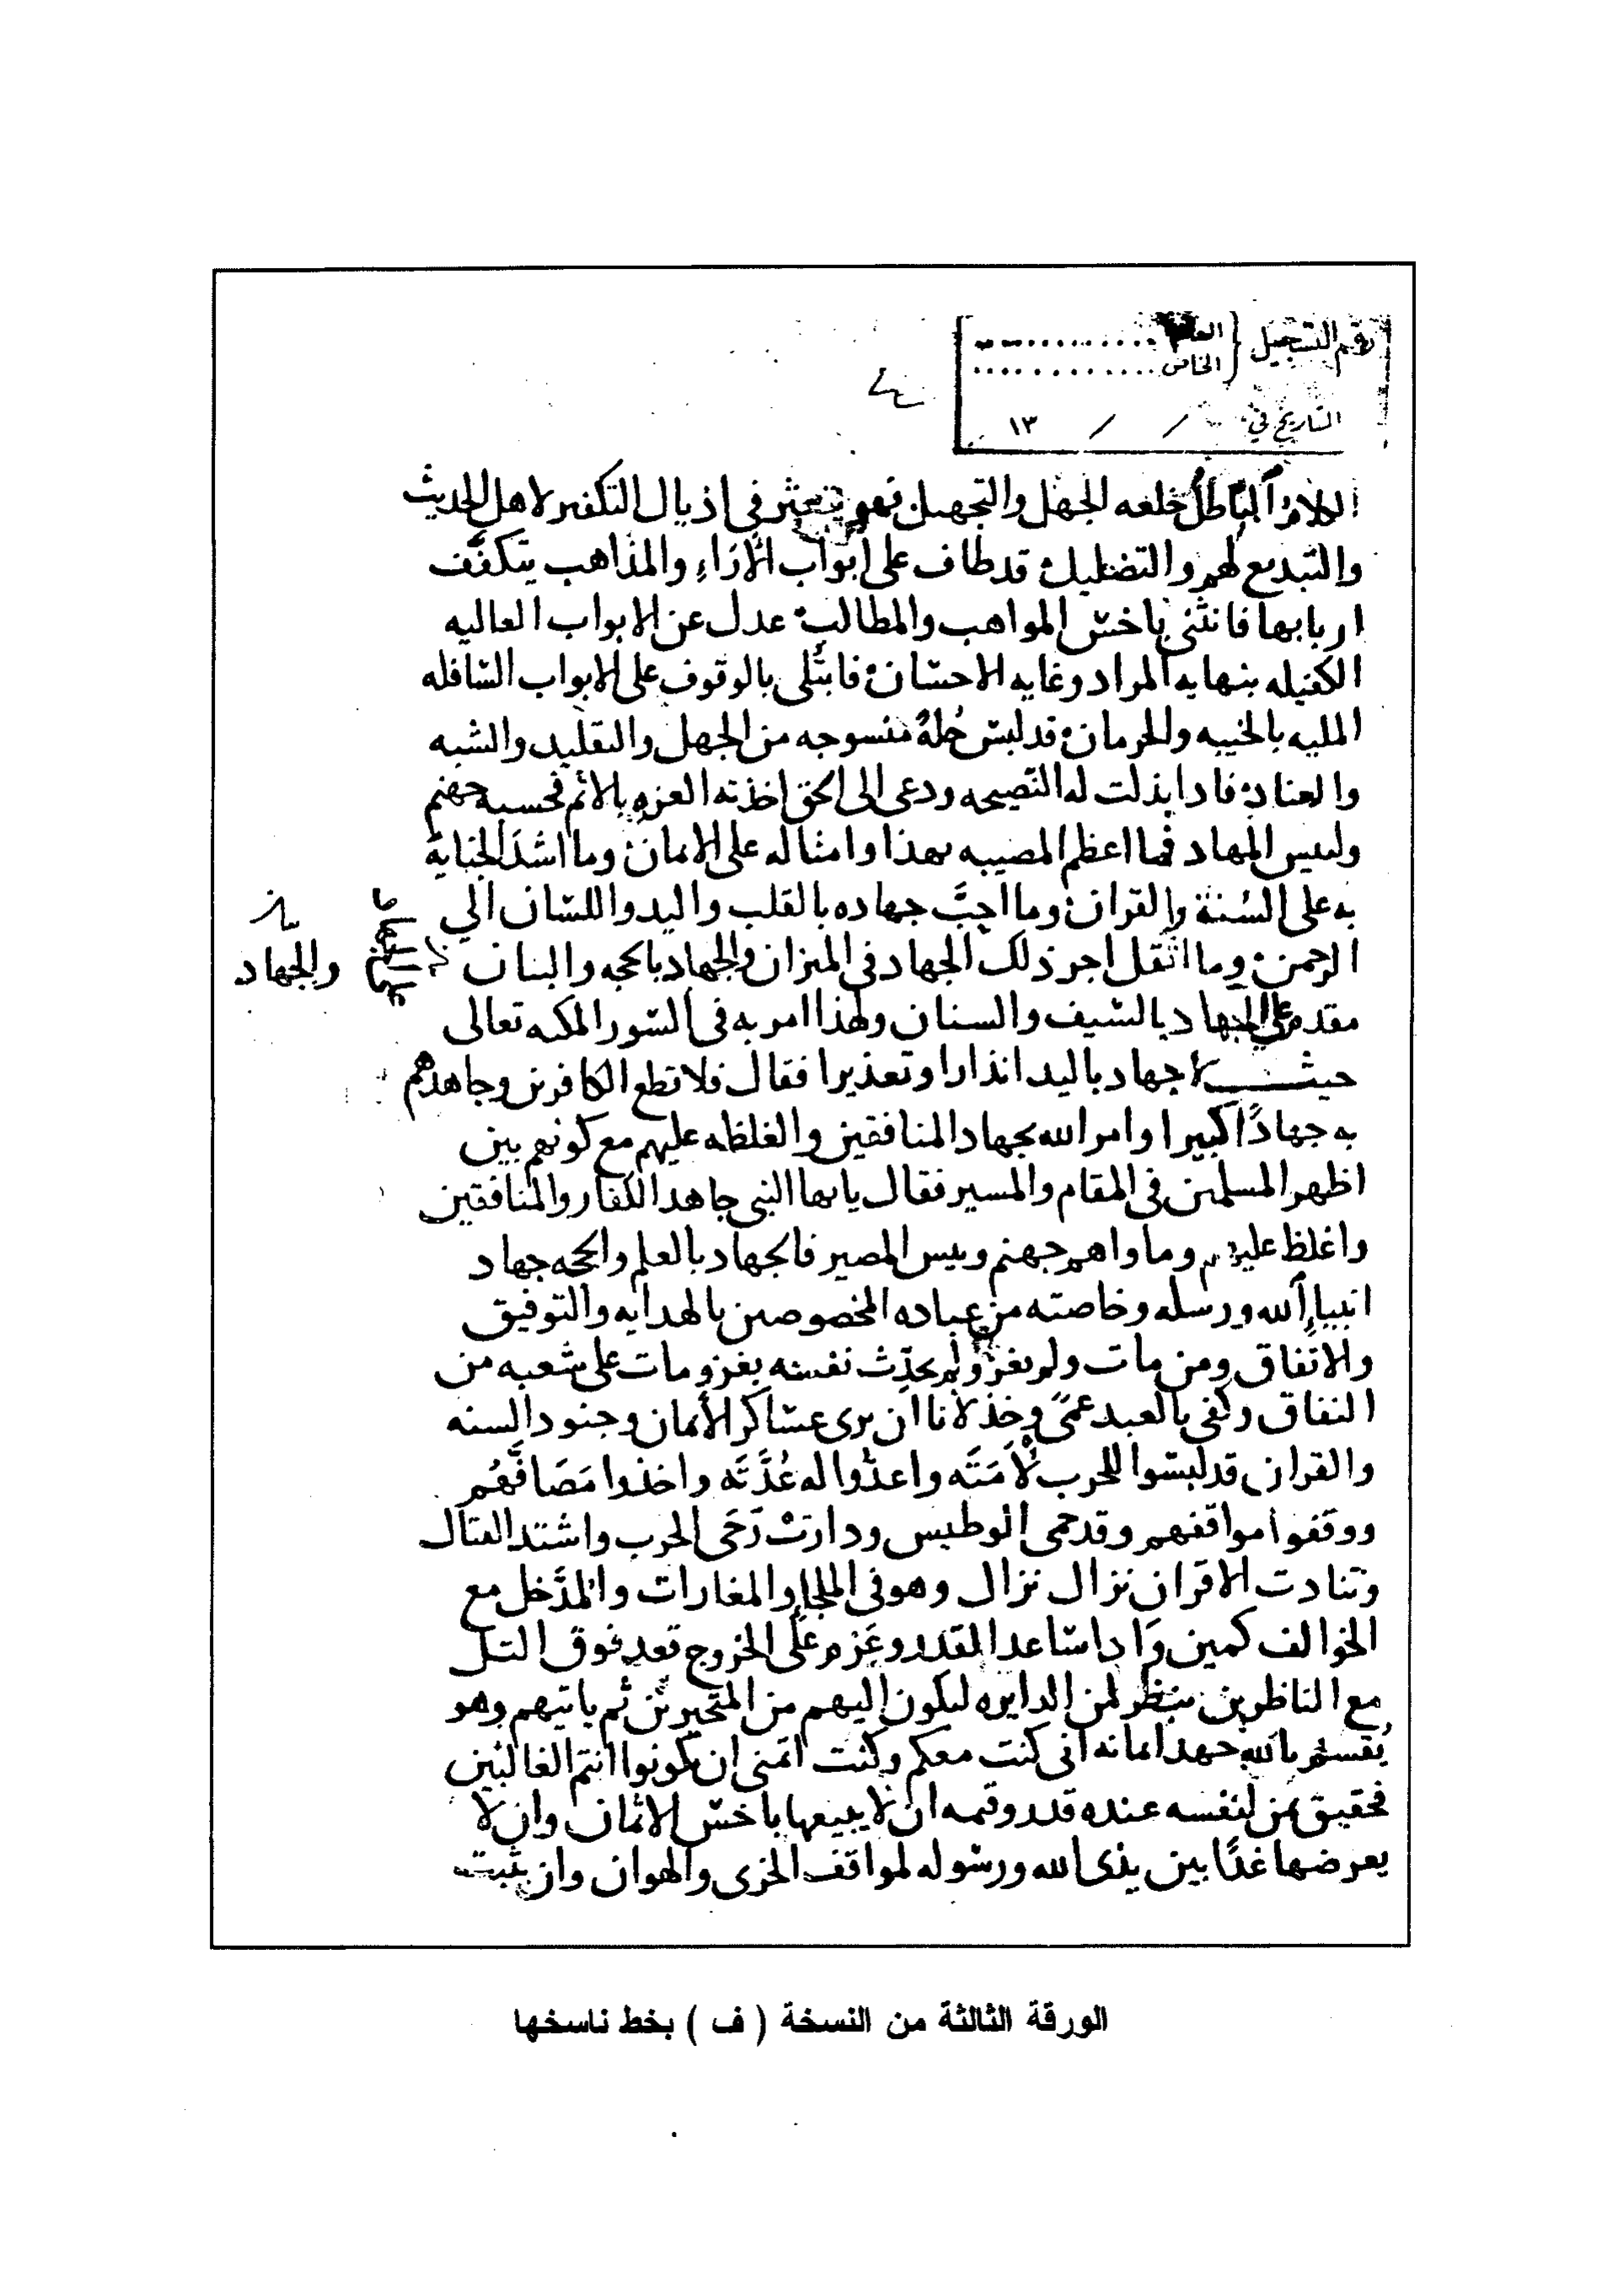 رقم التسجيل { العام ............
الخاص ............
التاريخ في / / ١٣
الكلام الباطل خلعه الجهل والتجهيل فهو يتعثر في اذيال التكفير لاهل الحديث
والتبديع لهم والتضليل قد طاف على ابواب الآراء والمذاهب يتكفف
اربابها فانثنى باخس المواهب والمطالب عدل عن الابواب العاليه
الكفيله بنهايه المراد وغايه الاحسان فابتلى بالوقوف على الابواب السافله
المليه بالخيبه والحرمان قد لبس حلة منسوجه من الجهل والتقليد والشبه
والعناد فاذا بذلت له النصيحه ودعى الى الحق اخذته العزه بالاثم فحسبه جهنم
ولبيس المهاد فما اعظم المصيبه بهذا وامثاله على الايمان وما اشد الجناية
به على السنة والقران وما احب جهاده بالقلب واليد واللسان الى
الرحمن وما اثقل اجر ذلك الجهاد في الميزان والجهاد بالحجه والبيان
والجهاد
مقدم على الجهاد بالسيف والسنان ولهذا امر به في السور المكيه تعالى
حيث لا جهاد باليد انذارا وتعذيرا فقال فلا تطع الكافرين وجاهدهم
به جهادًا كبيرا وامر الله بجهاد المنافقين والغلظه عليهم مع كونهم بين
اظهر المسلمين في المقام والمسير فقال يايها النبي جاهد الكفار والمنافقين
واغلظ عليهم وماواهم جهنم وبيس المصير فالجهاد بالعلم والحجه جهاد
انبياء الله ورسله وخاصته من عباده المخصوصين بالهدايه والتوفيق
والاتفاق ومن مات ولم يغز ولم يحدث نفسه بغزو مات على شعبه من
النفاق وكفى بالعبد عمىً وخذلانا ان يرى عساكر الأيمان وجنود السنه
والقران قد لبسوا للحرب لأمته واعدوا له عُدَّتَه واخذوا مَصَافَّهُم
ووقفوا مواقفهم وقد حمى الوطيس ودارت رَحَى الحرب واشتد القتال
وتنادت الاقران نزال نزال وهو في الملجا والمغارات والمدَّخل مع
الخوالف كمين واذا ساعد المقدور وعَزم على الخروج قعد فوق التل
مع الناظرين ينظر لمن الدايره ليكون اليهم من المتحيزين ثم ياتيهم وهو
يُقسم بالله جهد ايمانه انى كنت معكم وكنت اتمنى ان تكونوا انتم الغالبين
فحقيق بمن لنفسه عنده قدر وقيمه ان لا يبيعها باخس الاثمان وان لا
يعرضها غدًا بين يدى الله ورسوله لمواقف الخزى والهوان وان يثبت
الورقة الثالثة من النسخة ( ف ) بخط ناسخها